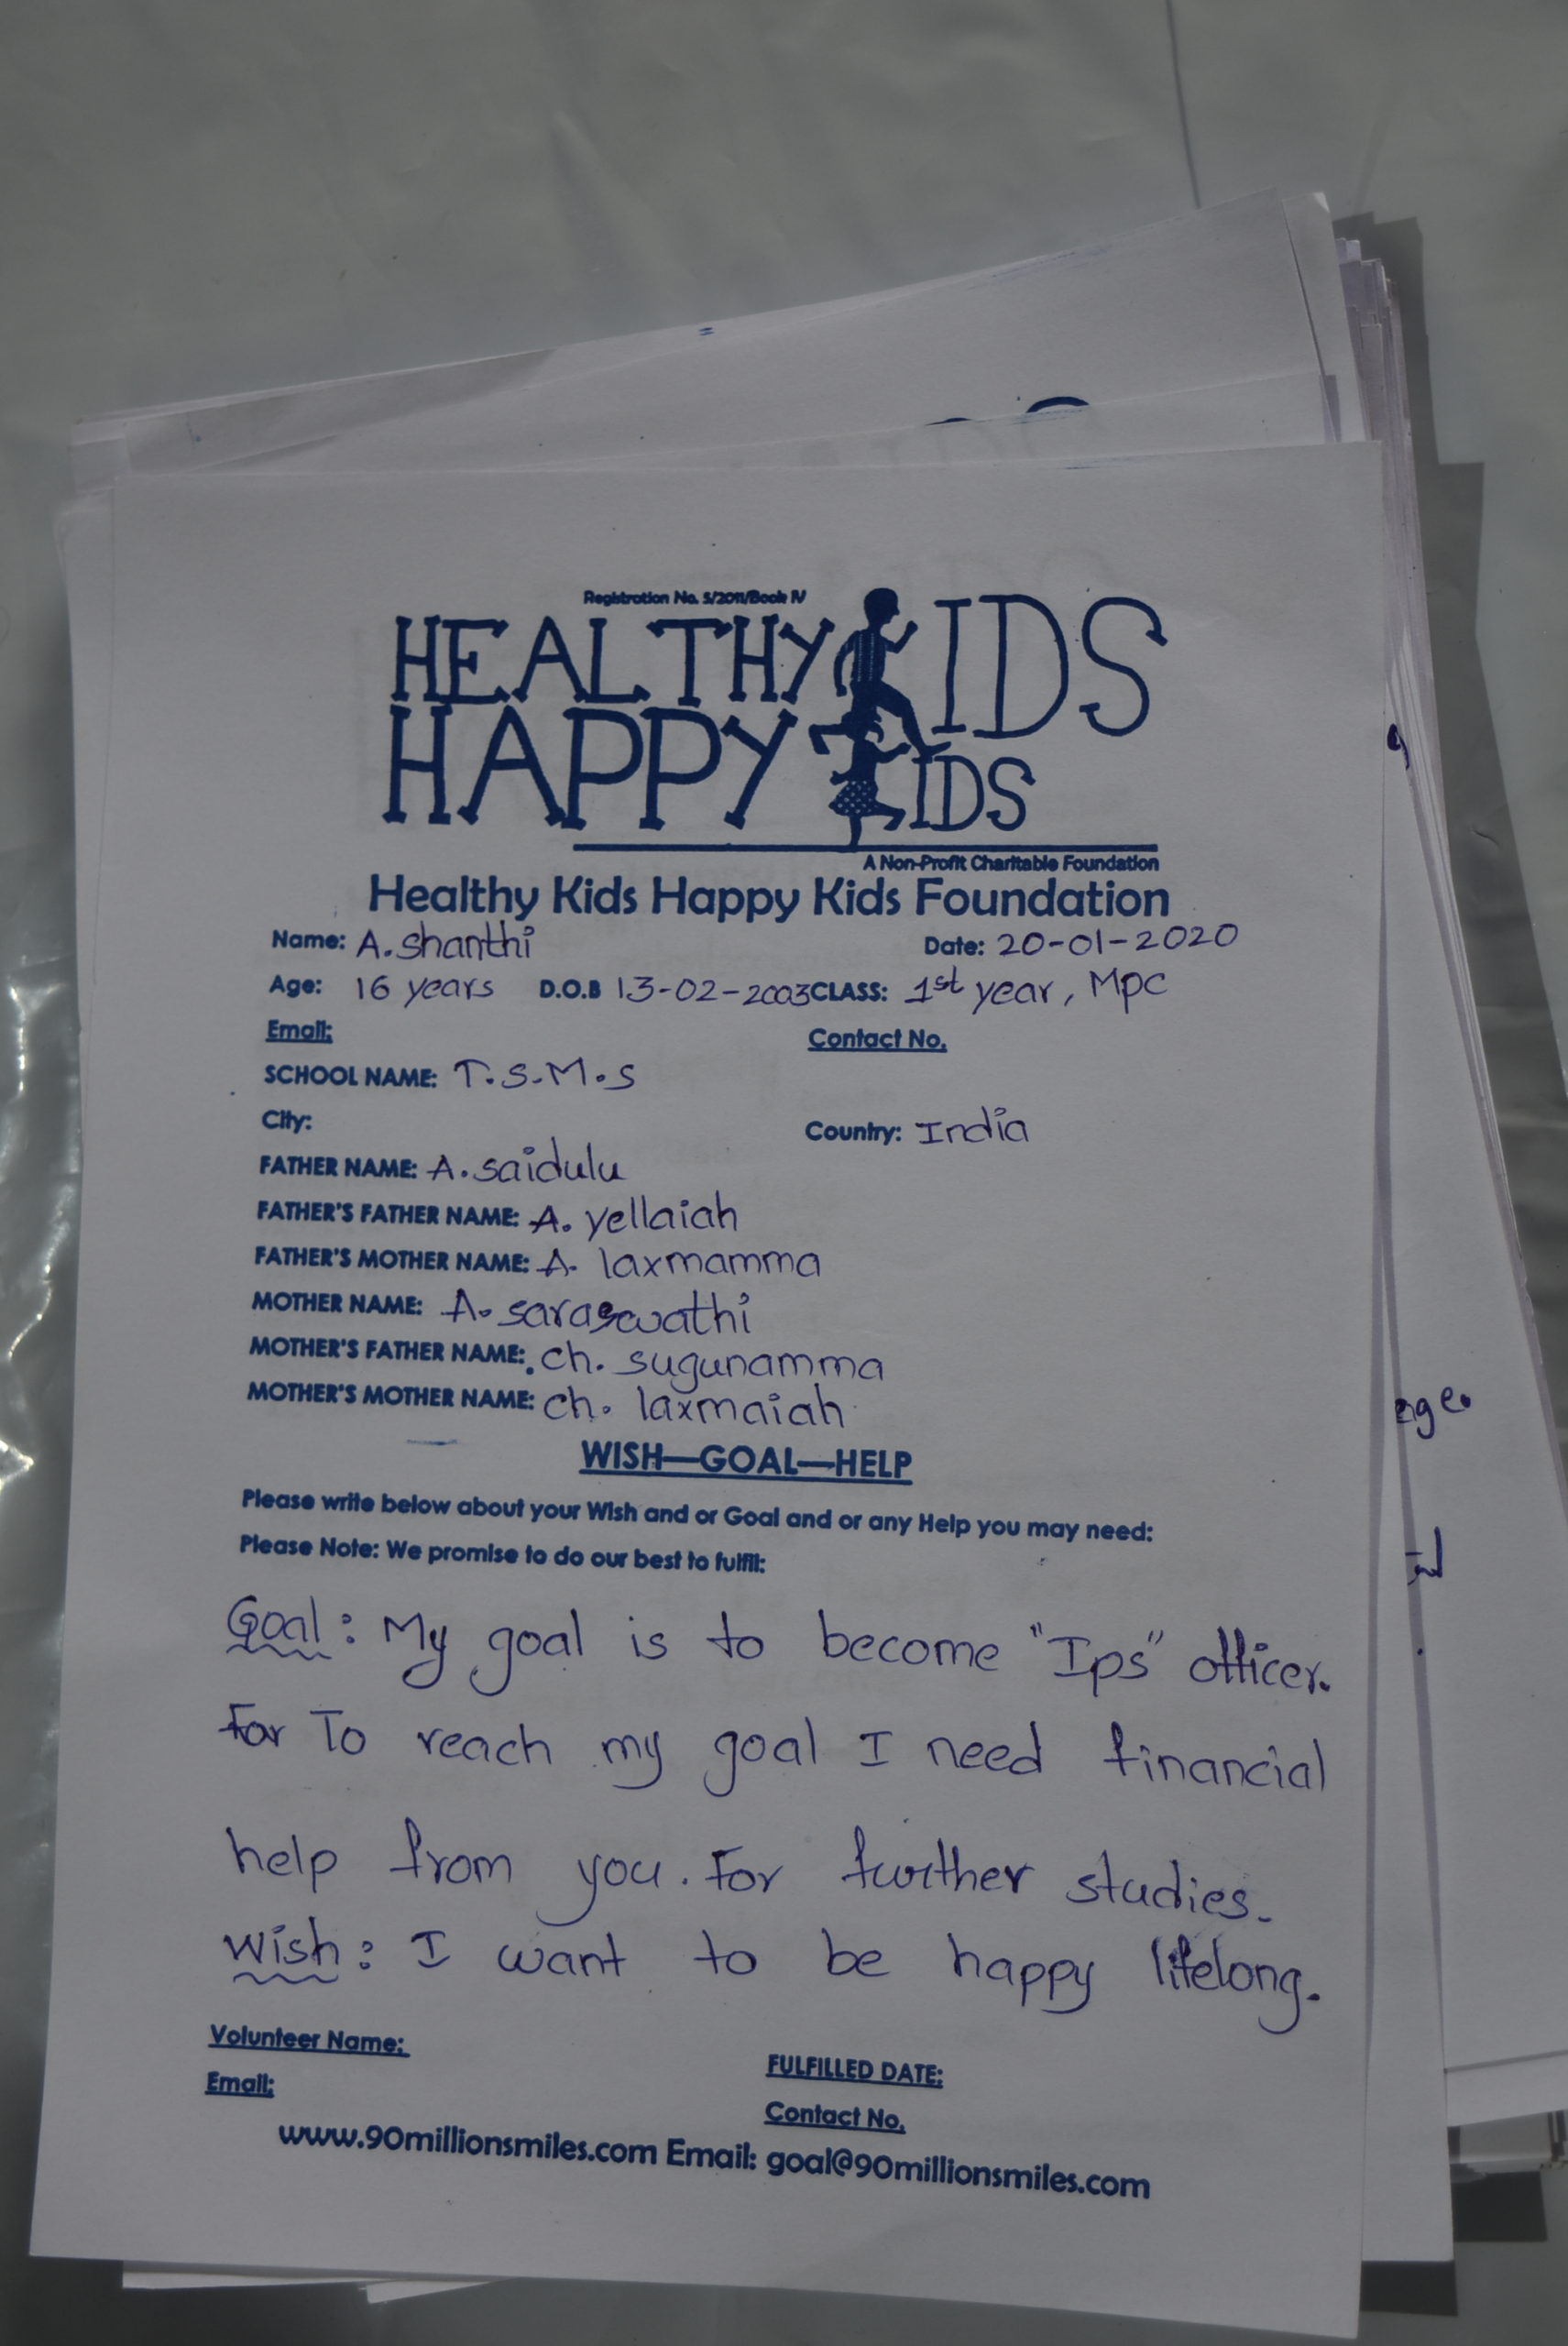 Registration No. 5/2011/Book IV
HEALTHY KIDS
HAPPY KIDS
A Non-Profit Charitable Foundation
Healthy Kids Happy Kids Foundation
Name: A. shanthi Date: 20-01-2020
Age: 16 years D.O.B 13-02-2003 CLASS: 1st year, Mpc
Email: Contact No.
SCHOOL NAME: T.S.M.S
City: Country: India
FATHER NAME: A. saidulu
FATHER'S FATHER NAME: A. yellaiah
FATHER'S MOTHER NAME: A. laxmamma
MOTHER NAME: A. saraswathi
MOTHER'S FATHER NAME: ch. sugunamma
MOTHER'S MOTHER NAME: ch. laxmaiah
WISH—GOAL—HELP
Please write below about your Wish and or Goal and or any Help you may need:
Please Note: We promise to do our best to fulfil:
Goal: My goal is to become "Ips" officer.
For To reach my goal I need financial
help from you. For further studies.
Wish: I want to be happy lifelong.
Volunteer Name: FULFILLED DATE:
Email: Contact No.
www.90millionsmiles.com Email: goal@90millionsmiles.com